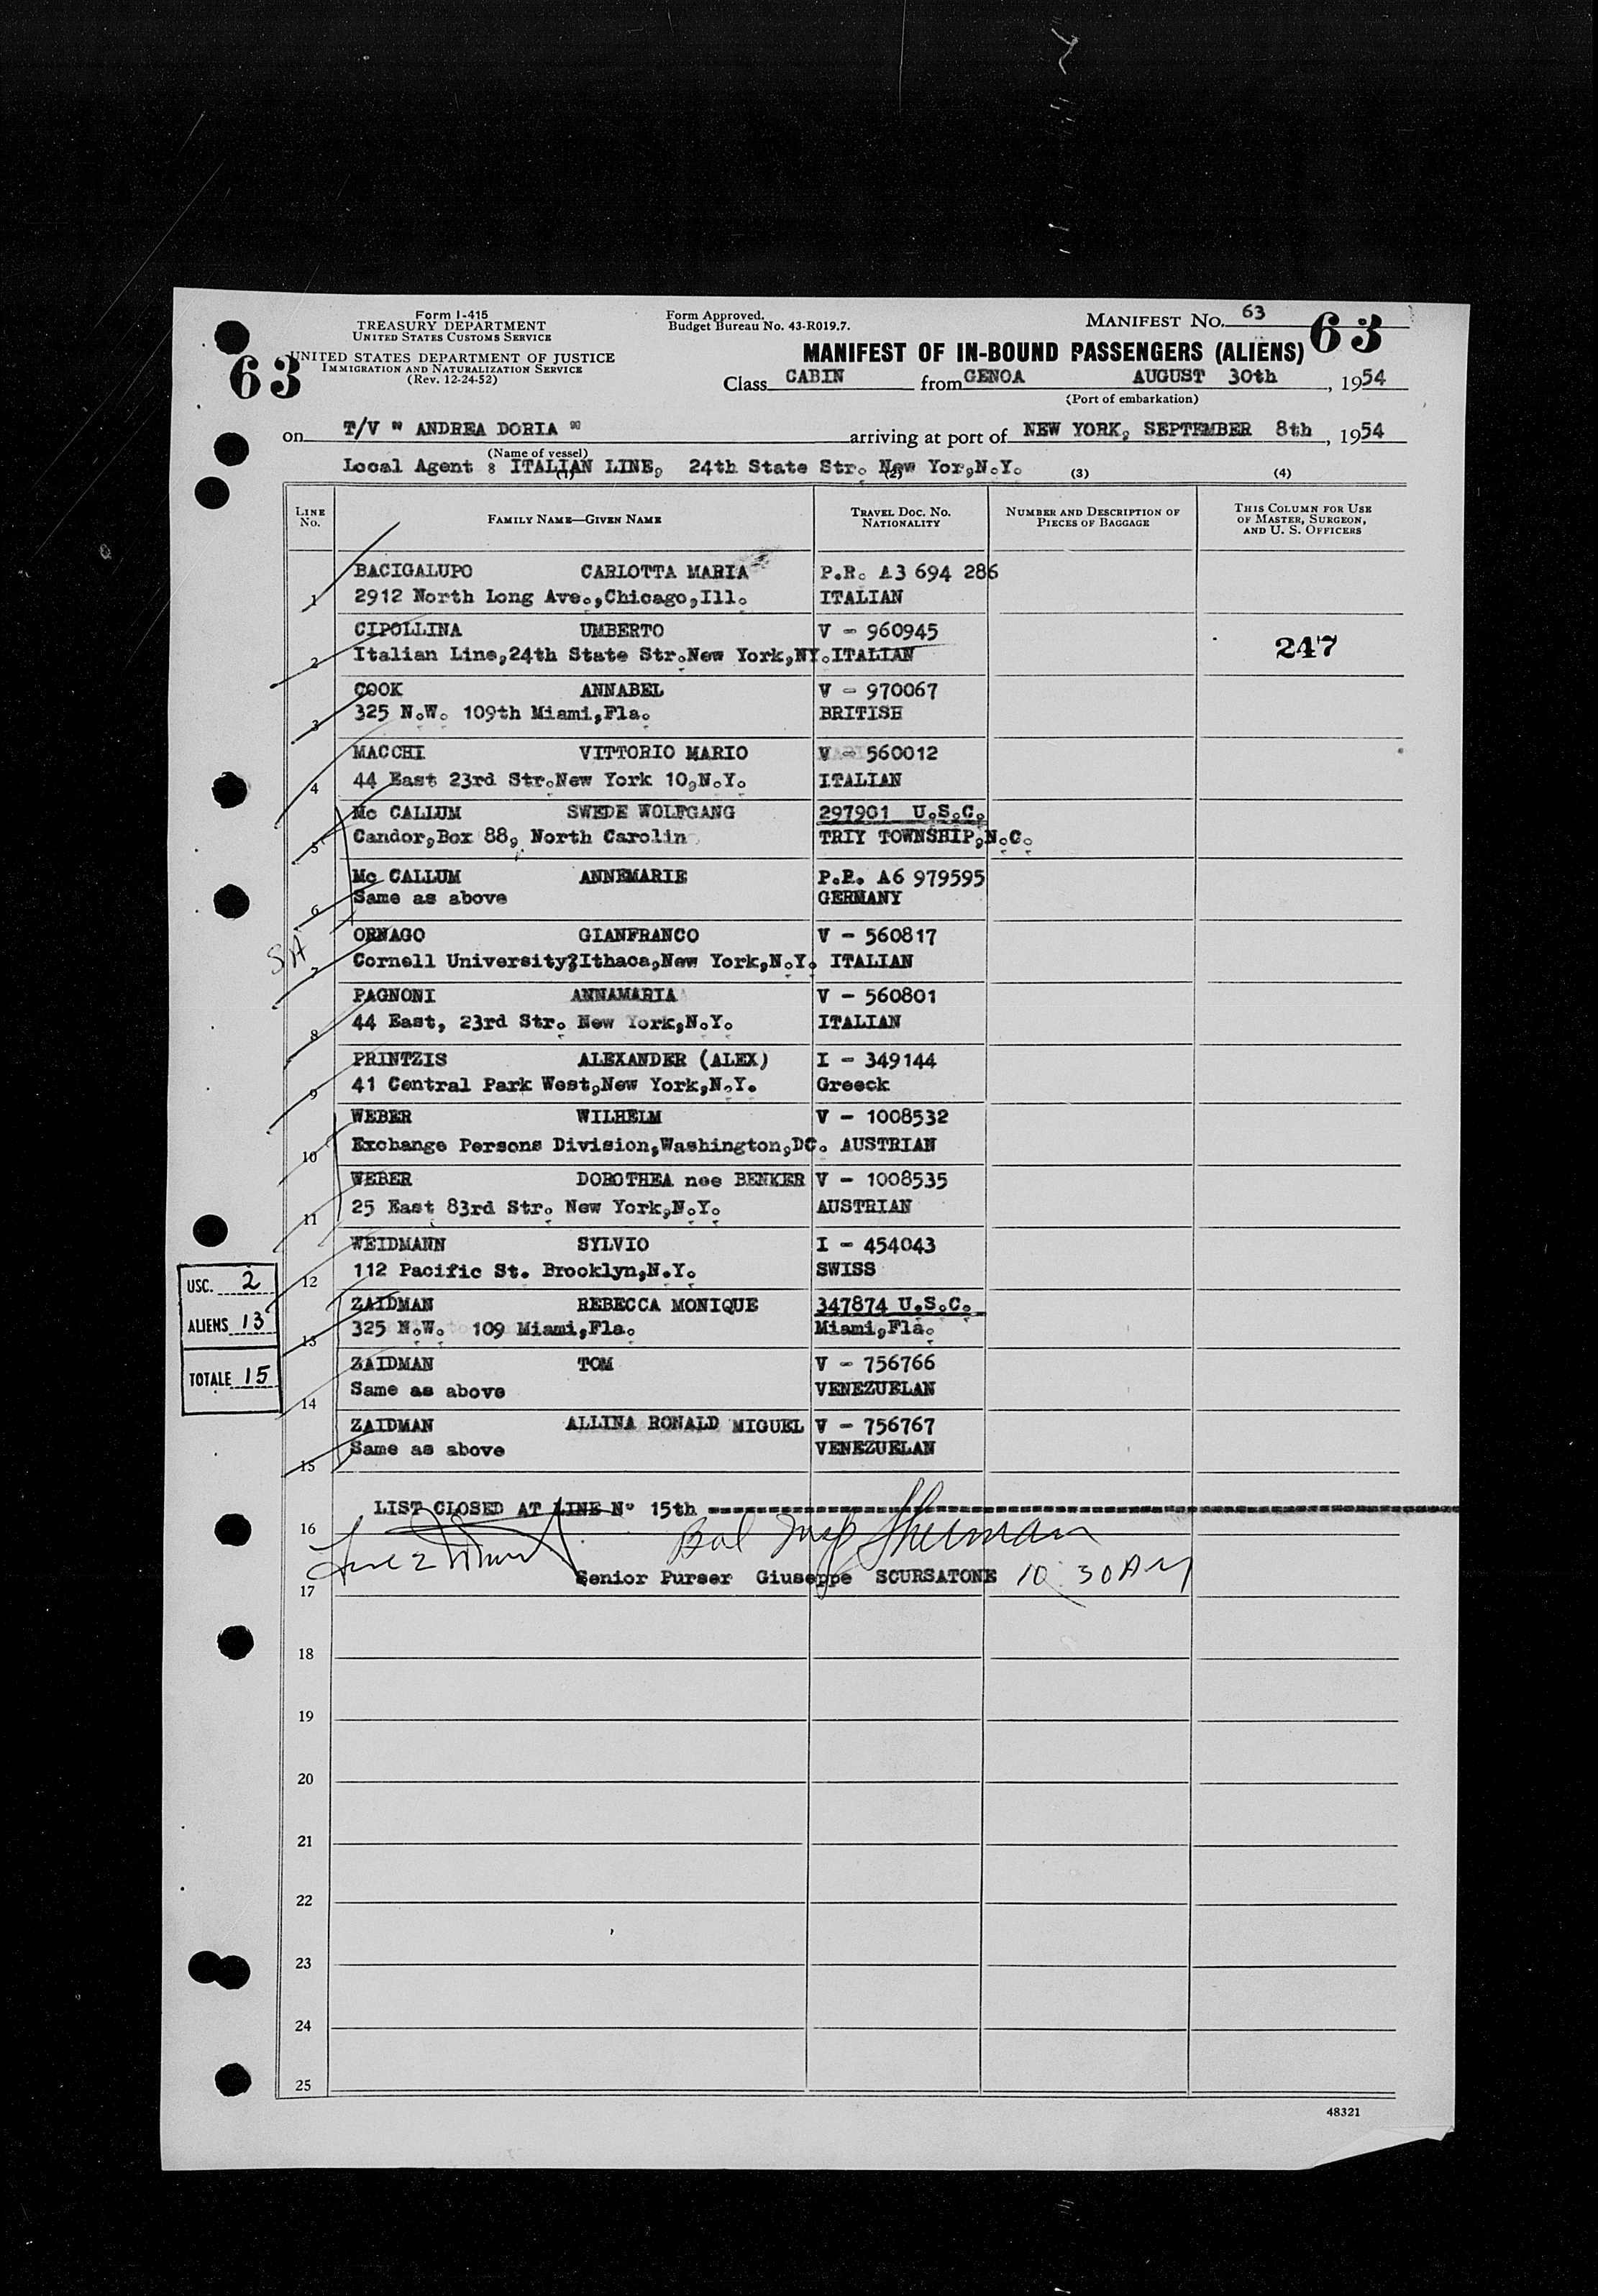 Form I-415
TREASURY DEPARTMENT
UNITED STATES CUSTOMS SERVICE
UNITED STATES DEPARTMENT OF JUSTICE
IMMIGRATION AND NATURALIZATION SERVICE
(Rev. 12-24-52)
Form Approved.
Budget Bureau No. 43-R019.7.
MANIFEST No. 63
63
63
MANIFEST OF IN-BOUND PASSENGERS (ALIENS)
Class CABIN from GENOA AUGUST 30th, 1954
(Port of embarkation)
on T/V " ANDREA DORIA " arriving at port of NEW YORK, SEPTEMBER 8th, 1954
(Name of vessel)
Local Agent : ITALIAN LINE, 24th State Str. New Yor,N.Y.
(1) (2) (3) (4)
LINE No. FAMILY NAME—GIVEN NAME TRAVEL DOC. No. NATIONALITY NUMBER AND DESCRIPTION OF PIECES OF BAGGAGE THIS COLUMN FOR USE OF MASTER, SURGEON, AND U. S. OFFICERS
BACIGALUPO CARLOTTA MARIA P.R. A3 694 286
1 2912 North Long Ave.,Chicago,Ill. ITALIAN
CIPOLLINA UMBERTO V - 960945
247
2 Italian Line,24th State Str.New York,NY.ITALIAN
COOK ANNABEL V - 970067
3 325 N.W. 109th Miami,Fla. BRITISH
MACCHI VITTORIO MARIO V - 560012
4 44 East 23rd Str.New York 10,N.Y. ITALIAN
Mc CALLUM SWEDE WOLFGANG 297901 U.S.C.
5 Candor,Box 88, North Carolin TRIY TOWNSHIP,N.C.
Mc CALLUM ANNEMARIE P.R. A6 979595
6 Same as above GERMANY
ORNAGO GIANFRANCO V - 560817
SA
7 Cornell University,Ithaca,New York,N.Y. ITALIAN
PAGNONI ANNAMARIA V - 560801
8 44 East, 23rd Str. New York,N.Y. ITALIAN
PRINTZIS ALEXANDER (ALEX) I - 349144
9 41 Central Park West,New York,N.Y. Greeck
WEBER WILHELM V - 1008532
10 Exchange Persons Division,Washington,DC. AUSTRIAN
WEBER DOROTHEA nee BENKER V - 1008535
11 25 East 83rd Str. New York,N.Y. AUSTRIAN
WEIDMANN SYLVIO I - 454043
12 112 Pacific St. Brooklyn,N.Y. SWISS
ZAIDMAN REBECCA MONIQUE 347874 U.S.C.
13 325 N.W. 109 Miami,Fla. Miami,Fla.
ZAIDMAN TOM V - 756766
14 Same as above VENEZUELAN
ZAIDMAN ALLINA RONALD MIGUEL V - 756767
15 Same as above VENEZUELAN
USC. 2
ALIENS 13
TOTALE 15
LIST CLOSED AT LINE N° 15th
16
Bal Insp Sherman
Senior Purser Giuseppe SCURSATONE 10:30AM
17
18
19
20
21
22
23
24
25
48321